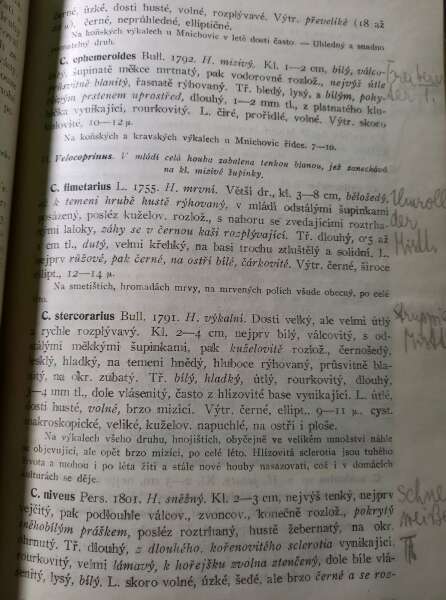 černé, úzké, dosti husté, volné, rozplývavé. Výtr. převeliké (18 až
černé, neprůhledné, elliptičné,
Na koňských výkalech u Mnichovic v letě dosti často. — Úhledný a snadno
druh.
C. ephemeroides Bull. 1792. H. mizivý. Kl. 1—2 cm, bílý, válco-
šupinatě měkce mrtnatý, pak vodorovně rozlož., nejvýš útle
blanitý, řasnatě rýhovaný. Tř. bledý, lysý, s bílým, pohy-
prstenem uprostřed, dlouhý, 1—2 mm tl., z platnatého klu-
vynikající, rourkovitý. L. čiré, prořídlé, volné. Výtr. skoro
10—12 μ.
Na koňských a kravských výkalech u Mnichovic řídce. 7—10.
Velocoprinus. V mládí celá houba zabalena tenkou blanou, jež zanechává
na kl. mizivé šupinky.
C. fimetarius L. 1755. H. mrvní. Větší dr., kl. 3—8 cm, běložedý,
k temeni hrubě hustě rýhovaný, v mládí odstálými šupinkami
posázený, posléz kuželov. rozlož., s nahoru se zvedajícími roztrha-
laloky, záhy se v černou kaši rozplývající. Tř. dlouhý, 0·5 až
cm tl., dutý, velmi křehký, na basi trochu ztluštělý a solidní. L.
nejprv růžové, pak černé, na ostří bílé, čárkovité. Výtr. černé, široce
ellipt., 12—14 μ.
Na smetištích, hromadách mrvy, na mrvených polích všude obecný, po celé
léto.
C. stercorarius Bull. 1791. H. výkalní. Dosti velký, ale velmi útlý
a rychle rozplývavý. Kl. 2—4 cm, nejprv bílý, válcovitý, s od-
stálými měkkými šupinkami, pak kuželovitě rozlož., černošedý,
lesklý, hladký, na temeni hnědý, hluboce rýhovaný, průsvitně bla-
nitý, na okr. zubatý. Tř. bílý, hladký, útlý, rourkovitý, dlouhý,
3—4 mm tl., dole vlásenitý, často z hlízovité base vynikající. L. útlé,
dosti husté, volné, brzo mizící. Výtr. černé, ellipt., 9—11 μ. cyst.
makroskopické, veliké, kuželov. napuchlé, na ostří i ploše.
Na výkalech všeho druhu, hnojištích, obyčejně ve velikém množství náhle
se objevující, ale opět brzo mizící, po celé léto. Hlízovitá sclerotia jsou tuhého
života a mohou i po léta žíti a stále nové houby nasazovati, což i v domácích
kulturách se děje.
C. niveus Pers. 1801. H. sněžný. Kl. 2—3 cm, nejvýš tenký, nejprv
vejčitý, pak podlouhle válcov., zvoncov., konečně rozlož., pokrytý
sněhobílým práškem, posléz roztrhaný, hustě žebernatý, na okr.
ohrnutý. Tř. dlouhý, z dlouhého, kořenovitého sclerotia vynikající,
rourkovitý, velmi lámavý, k hořejšku zvolna ztenčený, dole bíle vlá-
senitý, lysý, bílý. L. skoro volné, úzké, šedé, ale brzo černé a se roz-